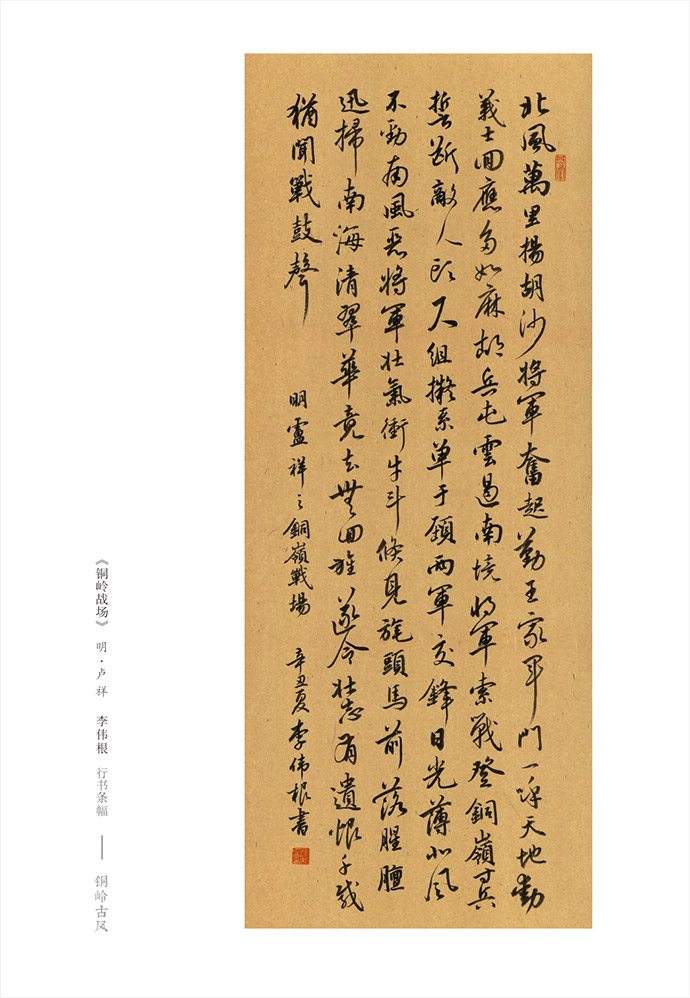 北風萬里揚胡沙將軍奮起勤王家軍門一呼天地動
義士回應多如麻胡兵屯雲遏南境將軍索戰登銅嶺寸兵
誓斷敵人頭尺組擬系單于頸兩軍交鋒日光薄北風
不勁南風惡將軍壯氣衝牛斗倏見旄頭馬前落腥膻
迅掃南海清翠華竟去無回旌遂令壯志有遺恨千載
猶聞戰鼓聲 明盧祥之銅嶺戰場 辛丑夏李伟根書
《铜岭战场》 明·卢祥 李伟根 行书条幅 —— 铜岭古风